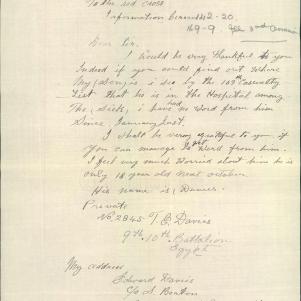 To the red Cross
Information Bureau 12-20
Dear Sir,
I would be very thankful to you
Indeed if you could find out Where
My Son is i see by the 169th Casualty
List that he is in the Hospital among
The Sick, i have had no word from him
Since January last.
I shall be very grateful to you if
you can manage to get Word from him.
I feel very much Worried about him he is
only 18 year old next october
His name is Davies.
Private
No 2845 T. E Davies
9th, 10th Battalion
Egypt
My address
Edward Davies
C/o S. Boaton